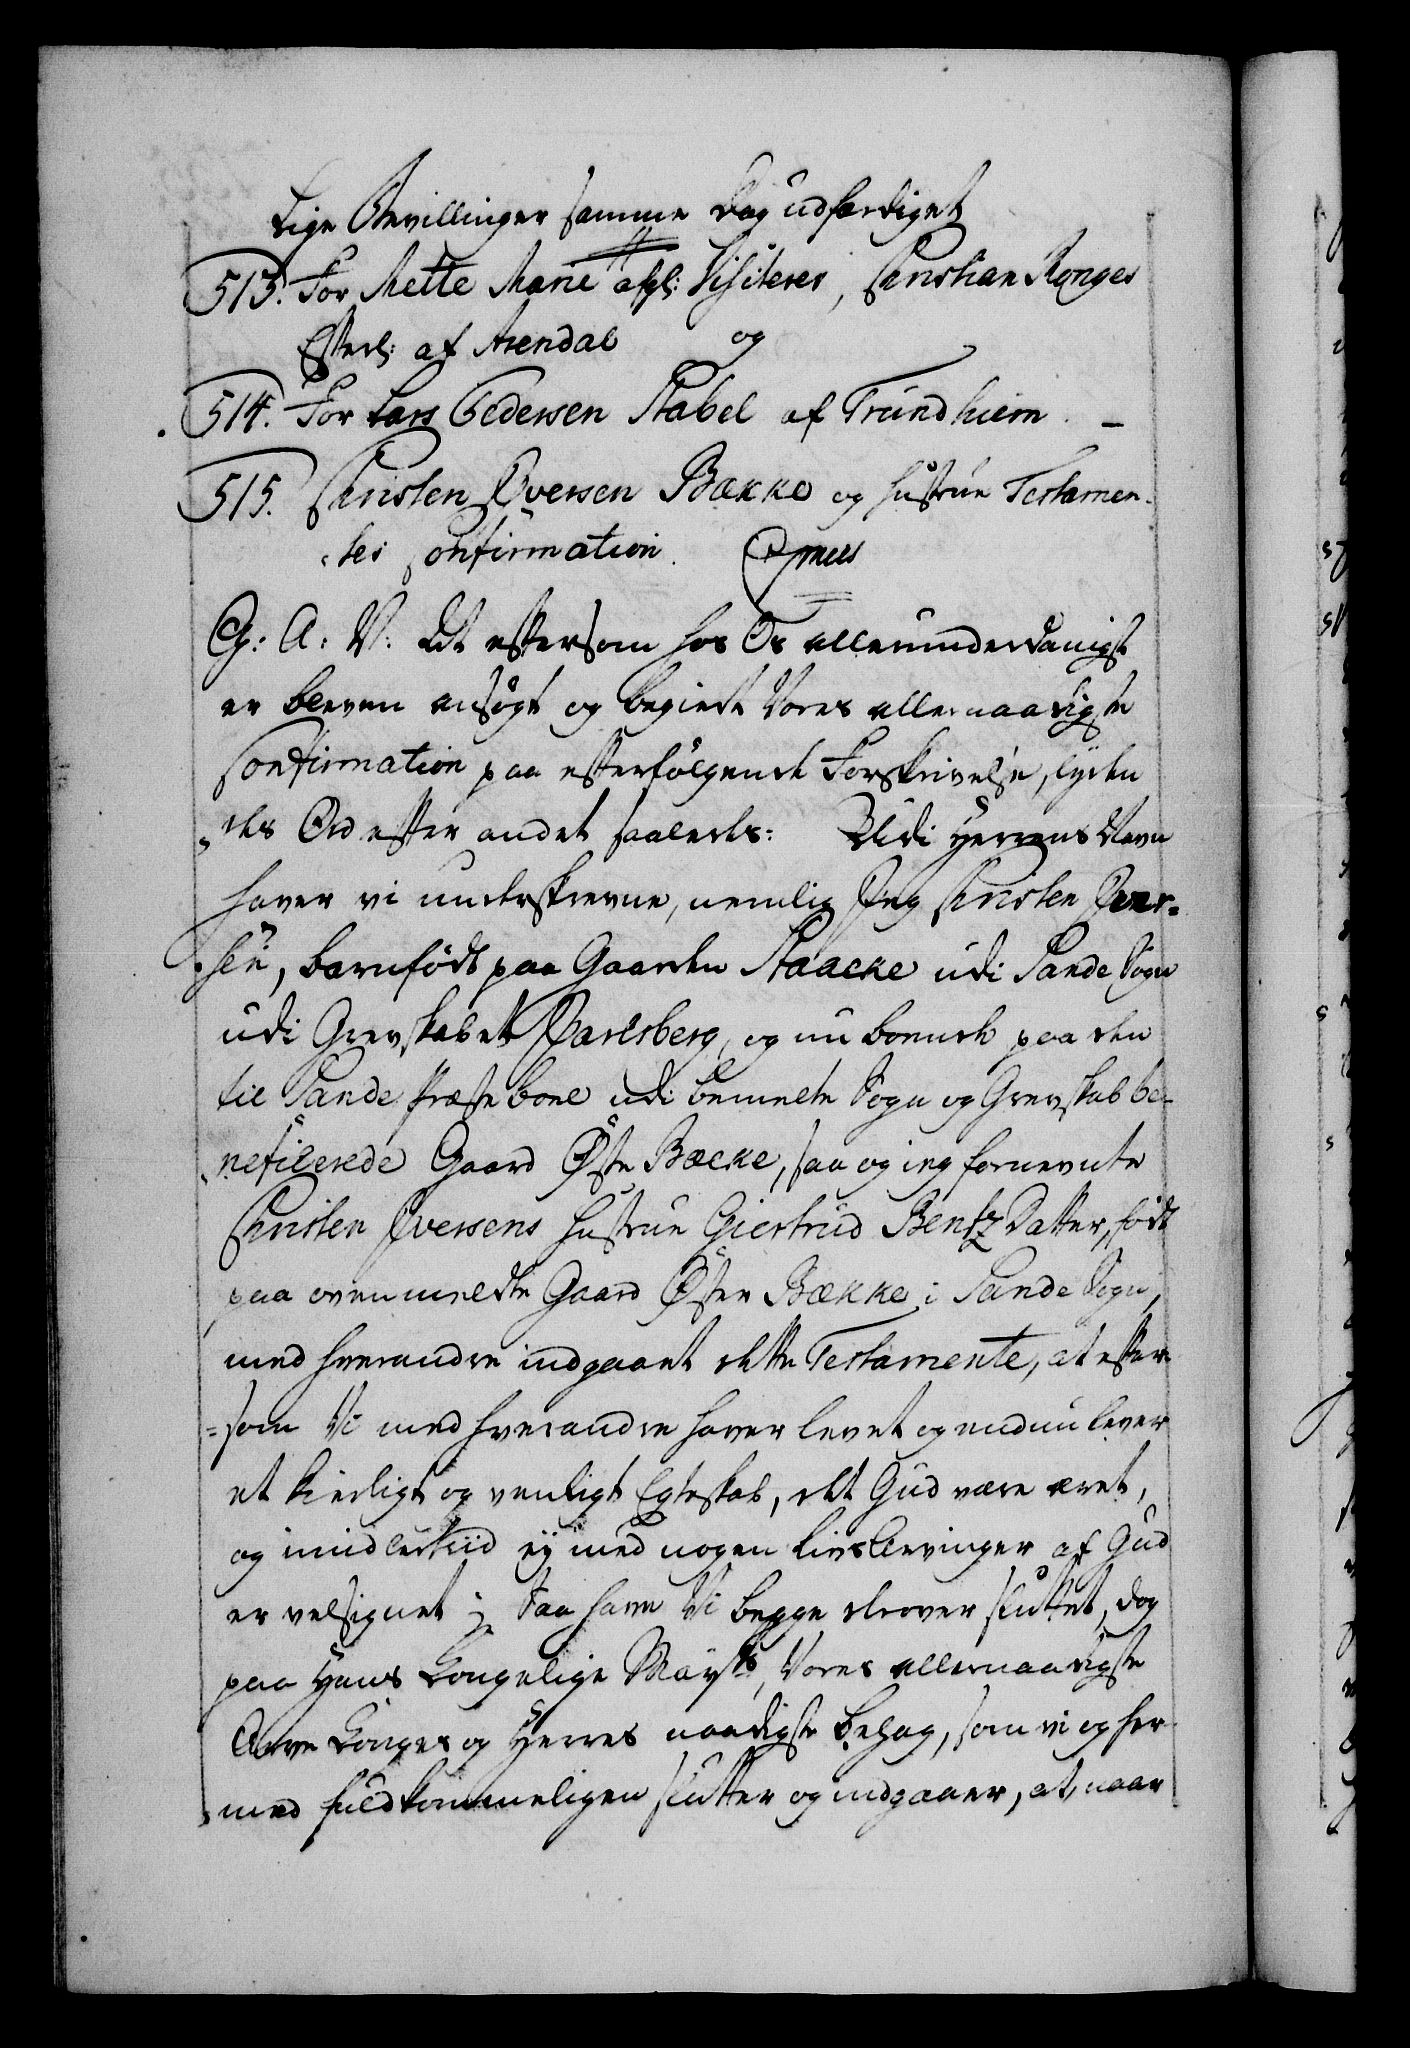 Lige Bevillinger samme Dag udfærdiget
513. For Mette Marie afgl: Visiteres, Christian Monges
Efterl: af Arendal og
514. For Lars Pedersen Stabel af Trundhiem. -
515. Christen Iversen Bække og Hustrue Testamen-
-tes Confirmation.
C: A: V: At eftersom hos Os allerunderdanigst
er bleven ansøgt og begiert Vores allernaadigste
Confirmation paa efterfølgende Forskrivelse, lyden
-des Ord efter andet saaledes: Udi Herrens Navn
haver vi underskrevne, nemlig Jeg Christen Iver-
-sen, barnfødt paa Gaarden Haacke udi Sande Sogn
udi Grevskabet Jarlsberg, og nu boende paa den
til Sande Præsteboel udi bemeldte Sogn og Grevskab be-
-neficerede Gaard Øste Bæcke, saa og jeg fornevnte
Christen Iversens Hustrue Giertrud Bentz Datter, født
paa ovenmeldte Gaard Østen Bække i Sande Sogn,
med hverandre indgaaet dette Testamente, at efter
-som Vi med hverandre haver levet og endnu lever
et kierligt og venligt Egteskab, det Gud være æret,
og imidlertiid ej med nogen Livs Arvinger af Gud
er velsignet; Saa have Vi begge derover sluttet, dog
paa Hans Kongelige Mayts, Vores allernaadigste
Arve Konges og Herres naadigste Behag, som vi og her
-med fuldkommeligen slutter og indgaaer, at, naar